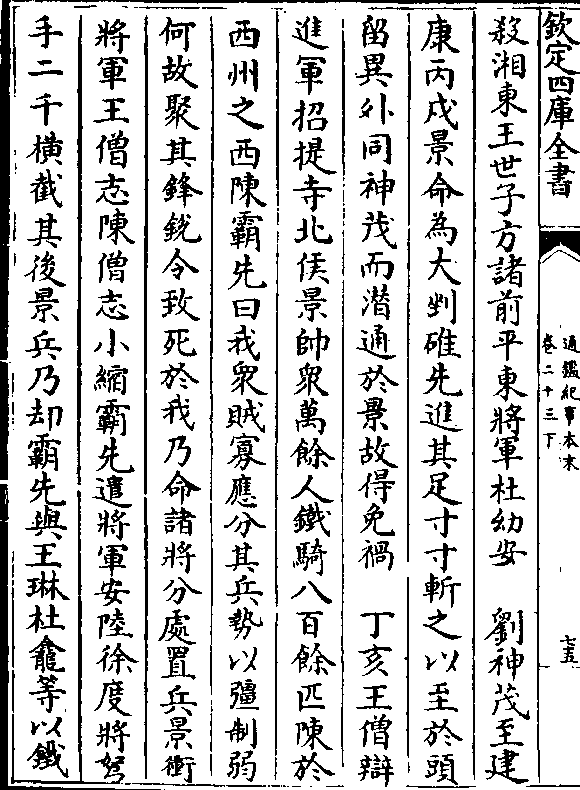 欽定四庫全書
通鑑紀事本末
卷二十三下
七五
殺湘東王世子方諸前平東將軍杜幼安　劉神茂至建
康丙戌景命為大剉碓先進其足寸寸斬之以至於頭
留異外同神茂而潛通於景故得免禍　丁亥王僧辯
進軍招提寺北侯景帥衆萬餘人鐵騎八百餘匹陳於
西州之西陳霸先曰我衆賊寡應分其兵勢以彊制弱
何故聚其鋒銳令致死於我乃命諸將分處置兵景衝
將軍王僧志陳僧志小縮霸先遣將軍安陸徐度將弩
手二千橫截其後景兵乃却霸先與王琳杜龕等以鐵